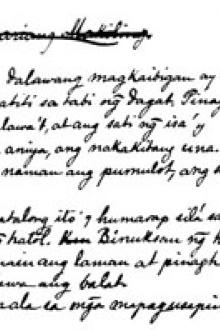 Mariang Makiling
dalawang magkaibigan ay
sa tabi ng̃ dagat.
at ang sabi ng̃ isa'y
aniya, ang nakakitang una.
naman ang pumulot, ang s
atalong ito'y humarap silá sa
hatol. Binuksan ng̃ h
ang laman at pinagh
awa ang balat.
ala sa mg̃a